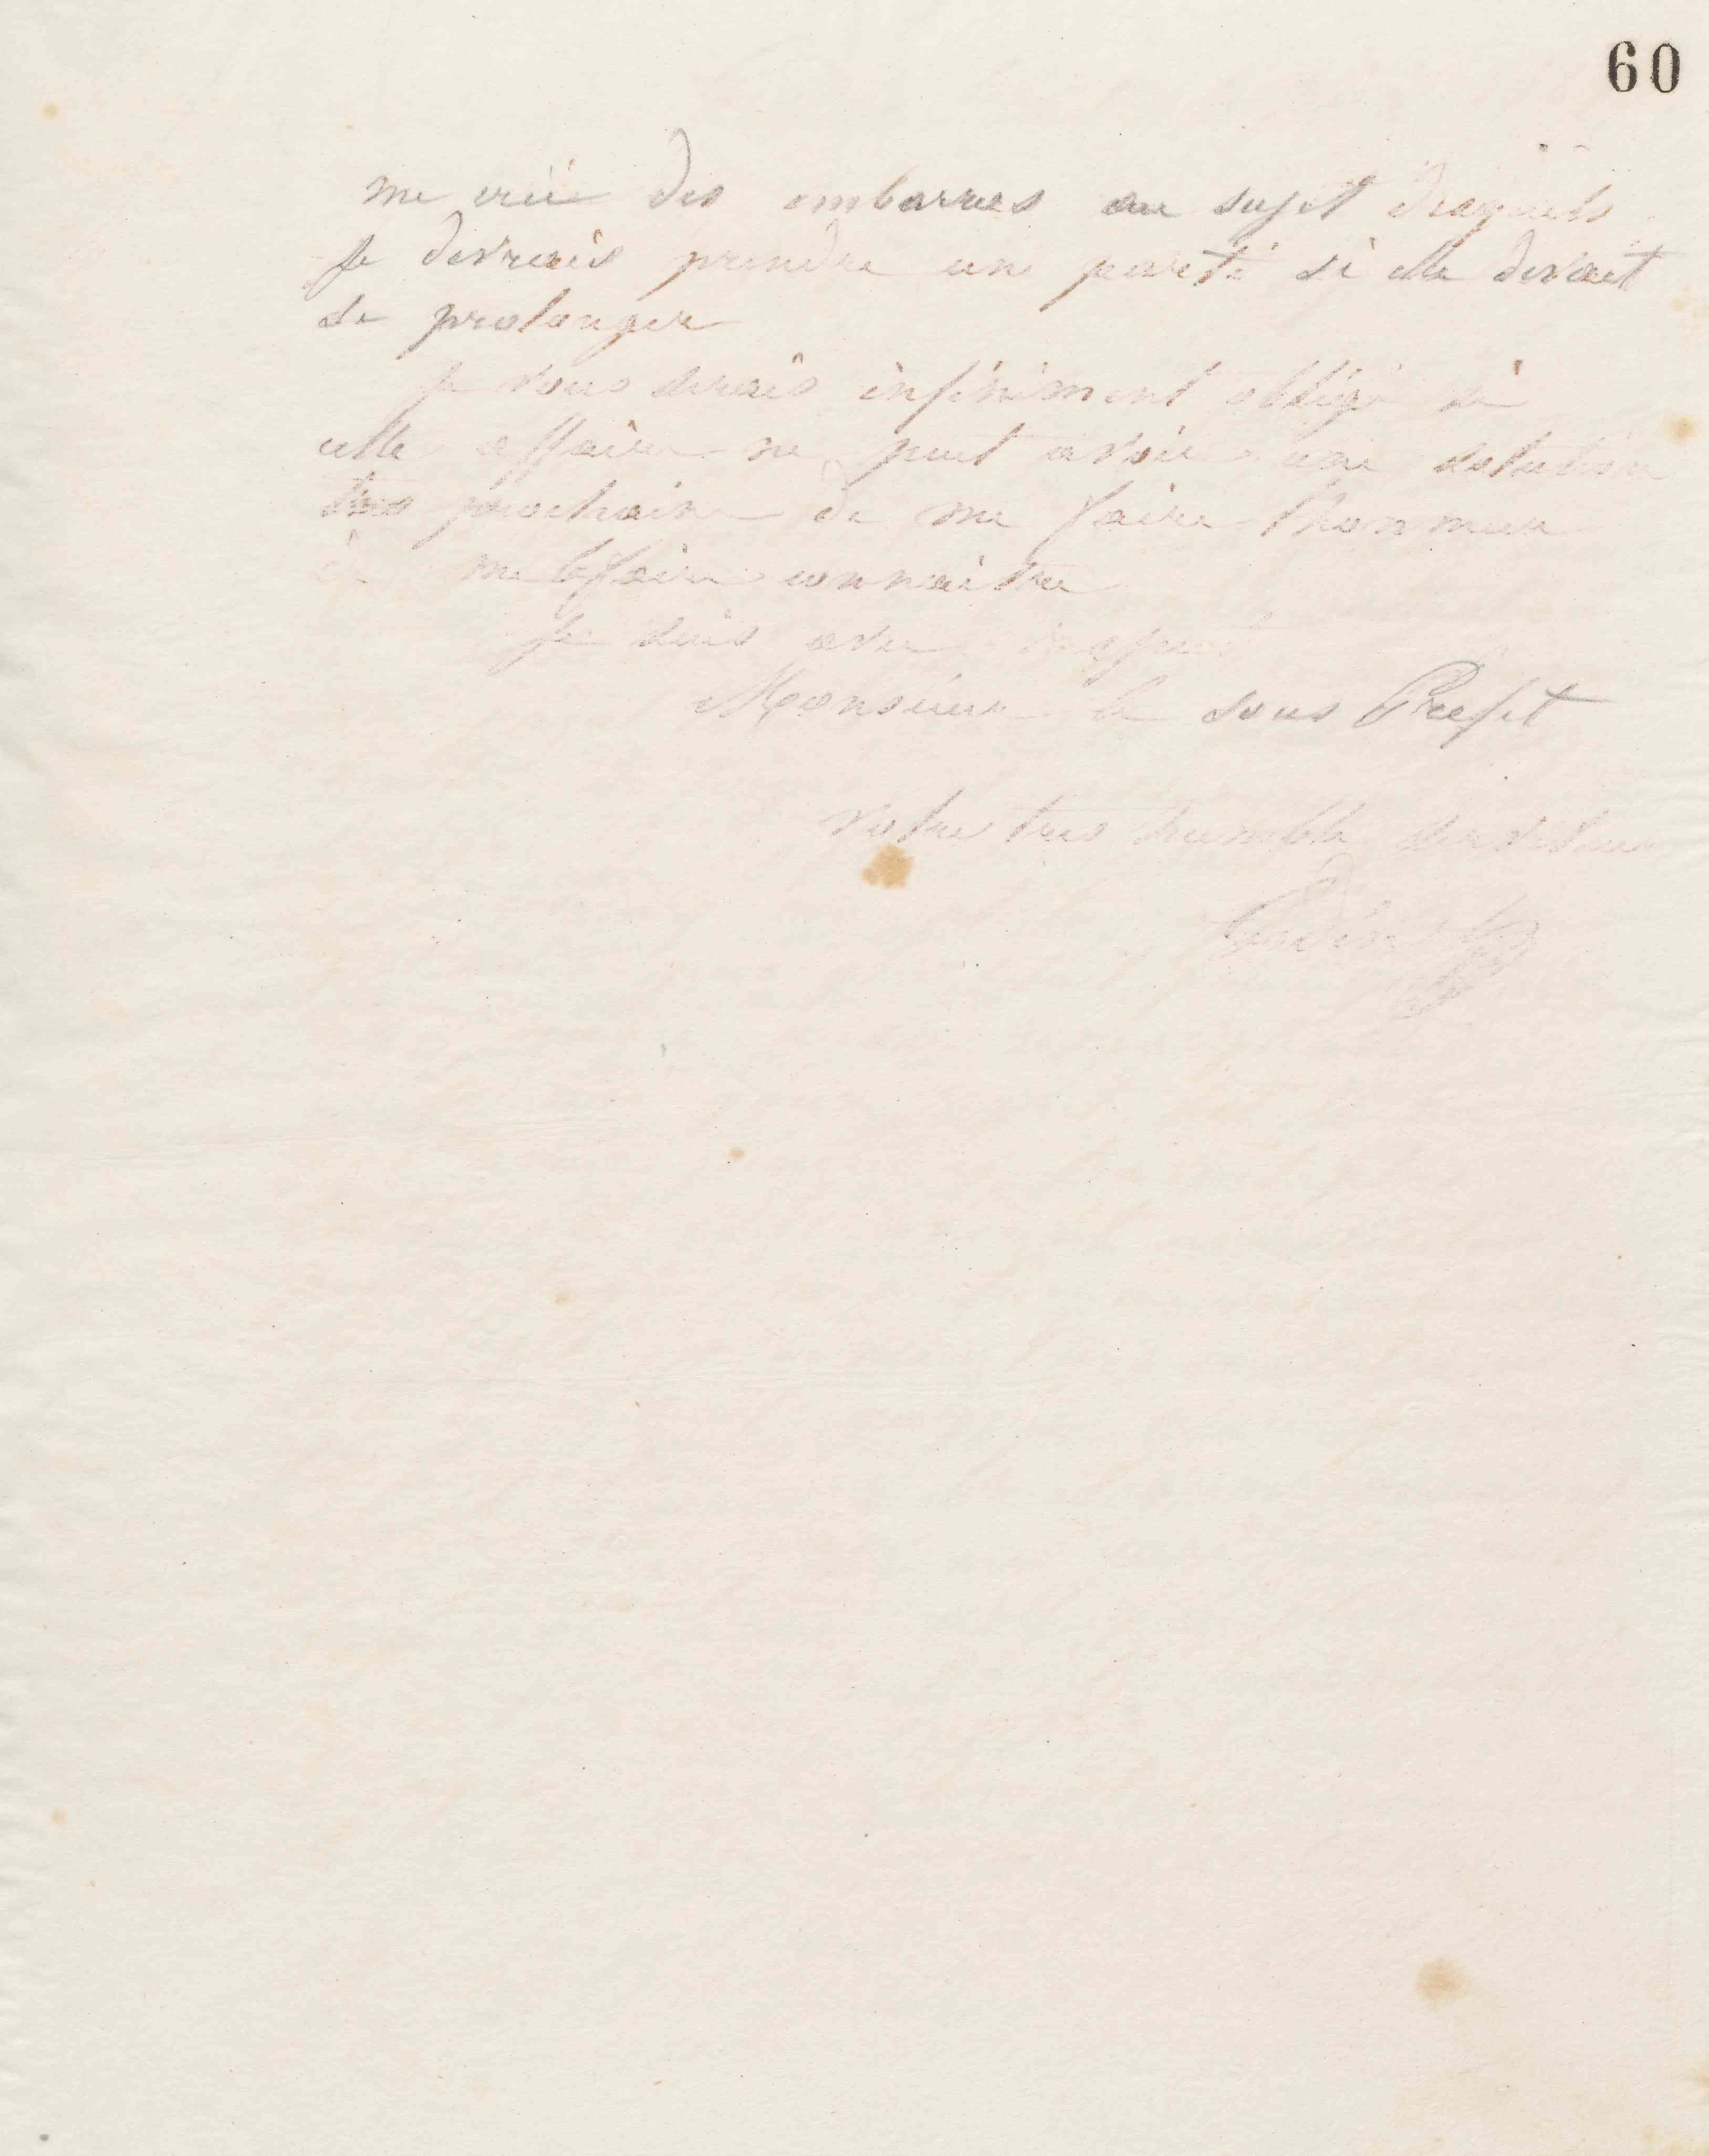 60
me crée des embarras au sujet desquels
je devrais prendre un parti si elle devait
se prolonger
Je vous serais infiniment obligé si
cette affaire ne peut avoir une solution
très prochaine de me faire l'honneur
de me le faire connaitre
Je suis avec respect
Monsieur le sous Prefet
votre tres humble serviteur
Godin